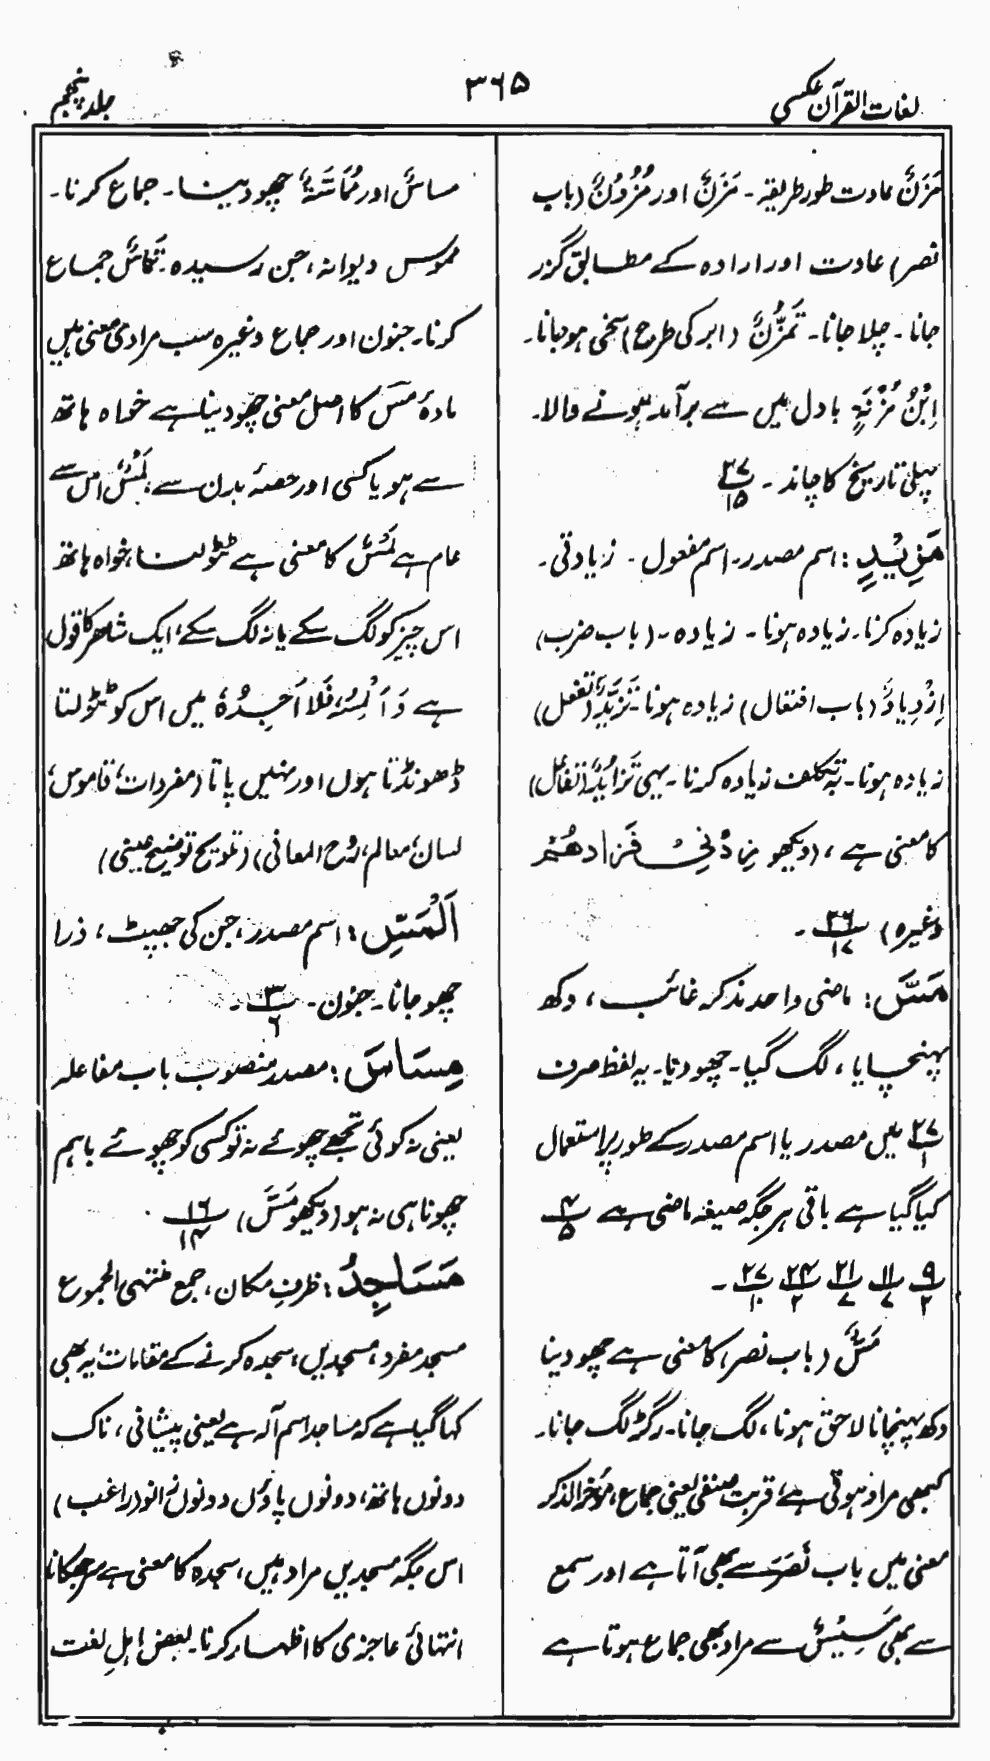 لغات القرآن عکسی
۳۶۵
جلد پنجم
مَزَنٌ عادت طور طریقہ۔ مَزَنٌ اور مُزُونٌ (باب
نصر) عادت اور ارادہ کے مطابق گزر
جانا۔ چلا جانا۔ تَمَزُّنٌ (ابر کی طرح) سخی ہوجانا۔
اِبْنُ مُزْنَۃٍ بادل میں سے برآمد ہونے والا۔
پہلی تاریخ کا چاند۔ ۲۷/۱۵
مَزِیْدٍ: اسم مصدر۔ اسم مفعول۔ زیادتی۔
زیادہ کرنا۔ زیادہ ہونا۔ زیادہ۔ (باب ضرب)
اِزْدِیَادٌ (باب افتعال) زیادہ ہونا۔ تَزَیُّدٌ (تفعل)
زیادہ ہونا۔ بہ تکلف زیادہ کرنا۔ یہی تَزَایُدٌ (تفاعل)
کا معنی ہے، (دیکھو زِدْنِیْ فَزَادَهُمْ
وغیرہ) ۲۶/۱۷۔
مَسَّ: ماضی واحد مذکر غائب، دکھ
پہنچایا، لگ گیا۔ چھو دیا۔ یہ لفظ صرف
۲۷/۱ میں مصدر یا اسم مصدر کے طور پر استعمال
کیا گیا ہے باقی ہر جگہ صیغہ ماضی ہے ۴/۵
۹/۲ ۱۱/۷ ۲۱/۷ ۲۴/۲ ۲۷/۱۰۔
مَسٌّ (باب نصر) کا معنی ہے چھو دینا
دکھ پہنچانا لاحق ہونا، لگ جانا۔ رگڑ لگ جانا۔
کبھی مراد ہوتی ہے قربت صنفی یعنی جماع، مؤخر الذکر
معنی میں باب نَصَرَ سے بھی آتا ہے اور سمع
سے بھی مَسِیْسٌ سے مراد بھی جماع ہوتا ہے
مساسٌ اور مُمَاسَّةٌ چھو دینا۔ جماع کرنا۔
ممسوس دیوانہ، جن رسیدہ۔ تَمَاسٌّ جماع
کرنا۔ جنون اور جماع وغیرہ سب مرادی معنی ہیں
مادۂ مَسّ کا اصل معنی چھو دینا ہے خواہ ہاتھ
سے ہو یا کسی اور حصۂ بدن سے، لَمْسٌ اس سے
عام ہے لَمْسٌ کا معنی ہے ٹٹولنا، خواہ ہاتھ
اس چیز کو لگ سکے یا نہ لگ سکے، ایک شاعر کا قول
ہے وَ اَلْمِسُهٗ فَلَا اَجِدُهٗ میں اس کو ٹٹولتا
ڈھونڈتا ہوں اور نہیں پاتا (مفردات، قاموس،
لسان، معالم، روح المعانی) (تلویح توضیح عینی)
اَلْمَسِّ: اسم مصدر، جن کی جھپیٹ، ذرا
چھو جانا۔ جنون۔ ۳/۶۔
مِسَاسَ: مصدر منصوب باب مفاعلہ
یعنی نہ کوئی تجھے چھوئے نہ تو کسی کو چھوئے باہم
چھونا ہی نہ ہو (دیکھو مَسَّ) ۱۶/۱۴
مَسَاجِدُ: ظرفِ مکان، جمع منتہی الجموع
مسجد مفرد، مسجدیں، سجدہ کرنے کے مقامات، یہ بھی
کہا گیا ہے کہ مساجد اسم آلہ ہے یعنی پیشانی، ناک
دونوں ہاتھ، دونوں پاؤں دونوں زانو (راغب)
اس جگہ مسجدیں مراد ہیں، سجدہ کا معنی ہے سر جھکانا
انتہائی عاجزی کا اظہار کرنا۔ بعض اہلِ لغت